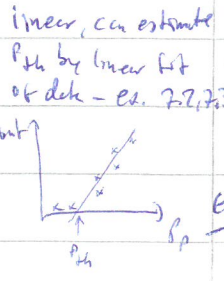 linear, can estimate
P_th by linear fit
of data – ex. 7.2, 7.3
out
P_th
P_p